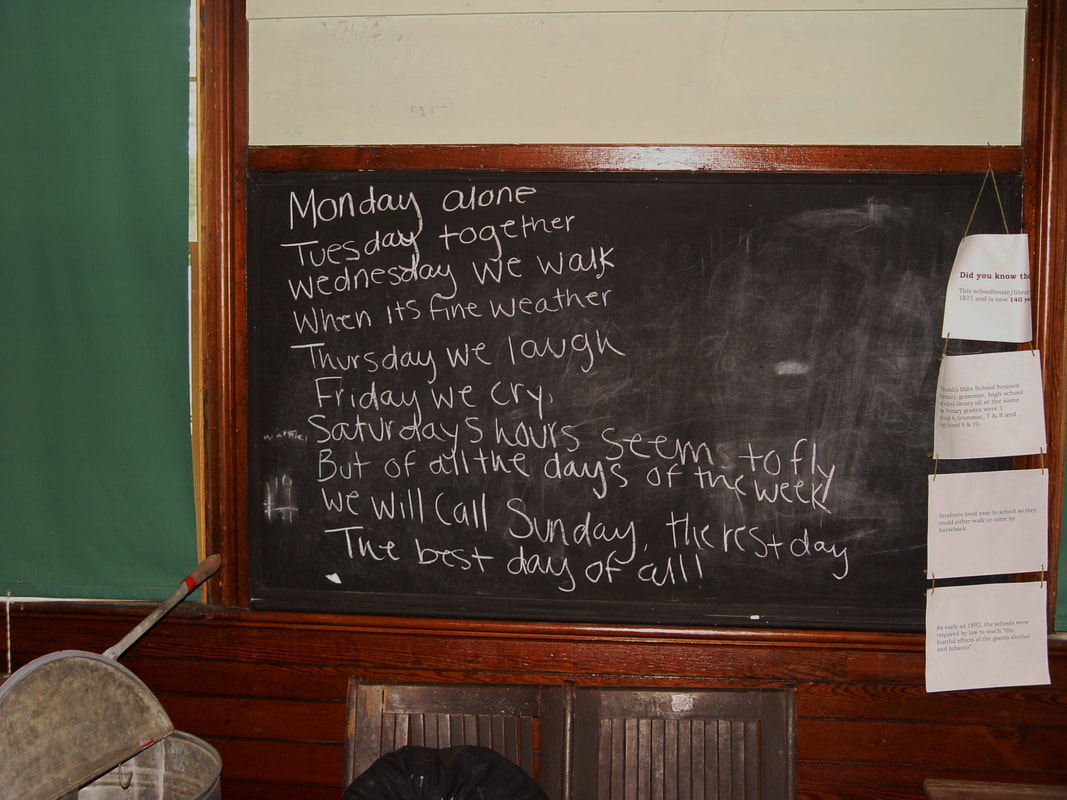 Monday alone
Tuesday together
Wednesday we walk
When its fine weather
Thursday we laugh
Friday we cry,
Saturdays hours seem to fly
But of all the days of the week
We will call Sunday, the rest day
The best day of all!
Did you know
This schoolhouse/
1871 and is now 140
Mills School housed
grammar, high school
library all at the same
Primary grades were 1
6, Grammar, 7 & 8 and
School 9 & 10.
Students lived near to school so they
could either walk or come by
horseback.
As early as 1892, the schools were
required by law to teach "the
hurtful effects of the giants alcohol
and tobacco"